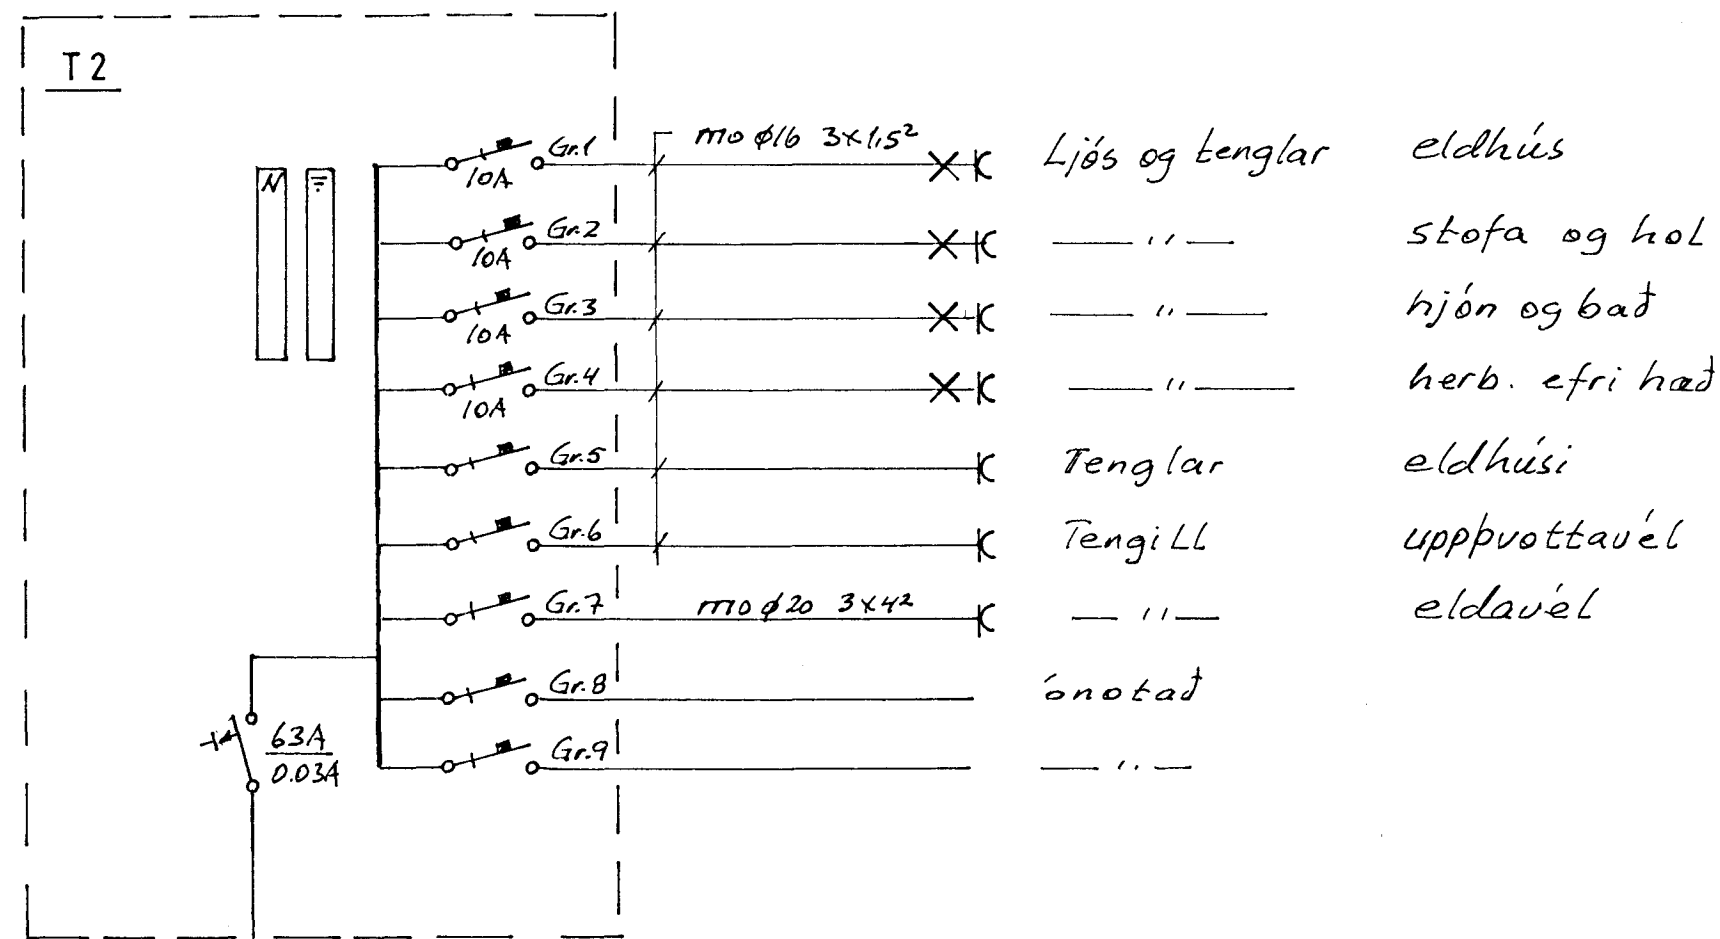 T2
N
Gr.1 mo ø16 3x1,5² Ljós og tenglar eldhús
10A
Gr.2 —— ,, —— stofa og hol
10A
Gr.3 —— ,, —— hjón og bað
10A
Gr.4 —— ,, —— herb. efri hæð
10A
Gr.5 Tenglar eldhúsi
Gr.6 Tengill uppþvottavél
Gr.7 mo ø20 3x4² — ,, — eldavél
Gr.8 ónotað
63A
0.03A
Gr.9 — ,, —